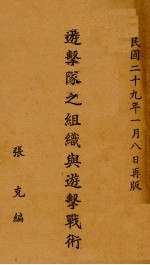 民國二十九年一月八日再版
遊擊隊之組織與遊擊戰術
張克編